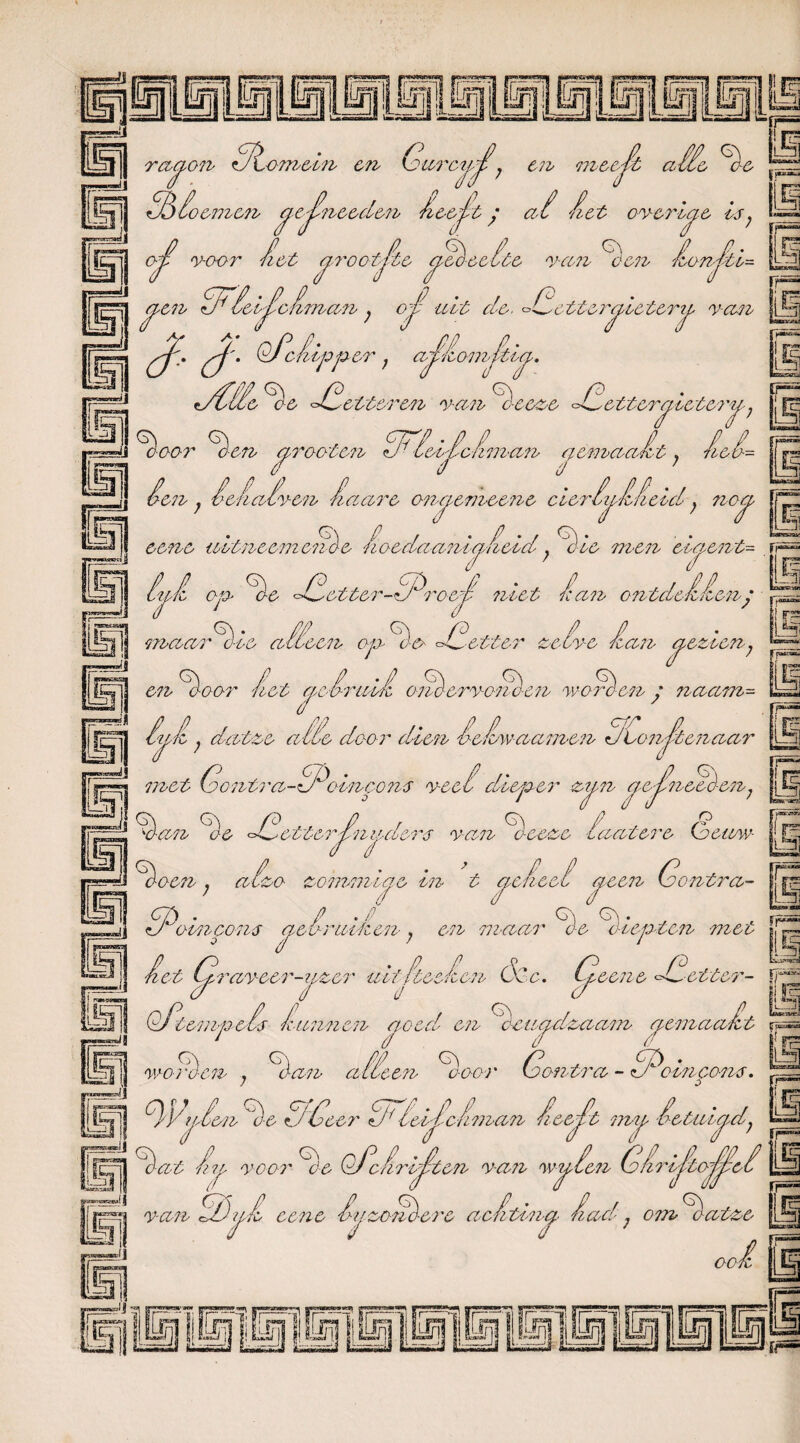 ragon Romein en Curcyf, en meeſt alle de
Bloemen geſneeden heeft; al het overige is,
of voor het grootſte gedeelte van den konſti=
gen Fleiſchman, of uit de Lettergietery van
J. J. Schipper, afkomſtig.
Alle de Letteren van deeze Lettergietery,
door den grooten Fleiſchman gemaakt, heb=
ben, behalven haare ongemeene cierlykheid, nog
eene uitneemende hoedaanigheid, die men eigent=
lyk op de Letter-Proef niet kan ontdekken;
maar die alleen op de Letter zelve kan gezien,
en door het gebruik ondervonden worden; naam=
lyk, datze alle door dien bekwaamen Konſtenaar
met Contra-Poinçons veel dieper zyn geſneeden,
dan de Letterſnyders van deeze laatere Eeuw
doen, alzo zommige in 't geheel geen Contra-
Poinçons gebruiken, en maar de diepten met
het Graveer-yzer uitſteeken &c. Geene Letter-
Stempels kunnen goed en deugdzaam gemaakt
worden, dan alleen door Contra-Poinçons.
Wylen de Heer Fleiſchman heeft my betuigd,
dat hy voor de Schriften van wylen Chriſtoffel
van Dyk eene byzondere achting had, om datze
ook